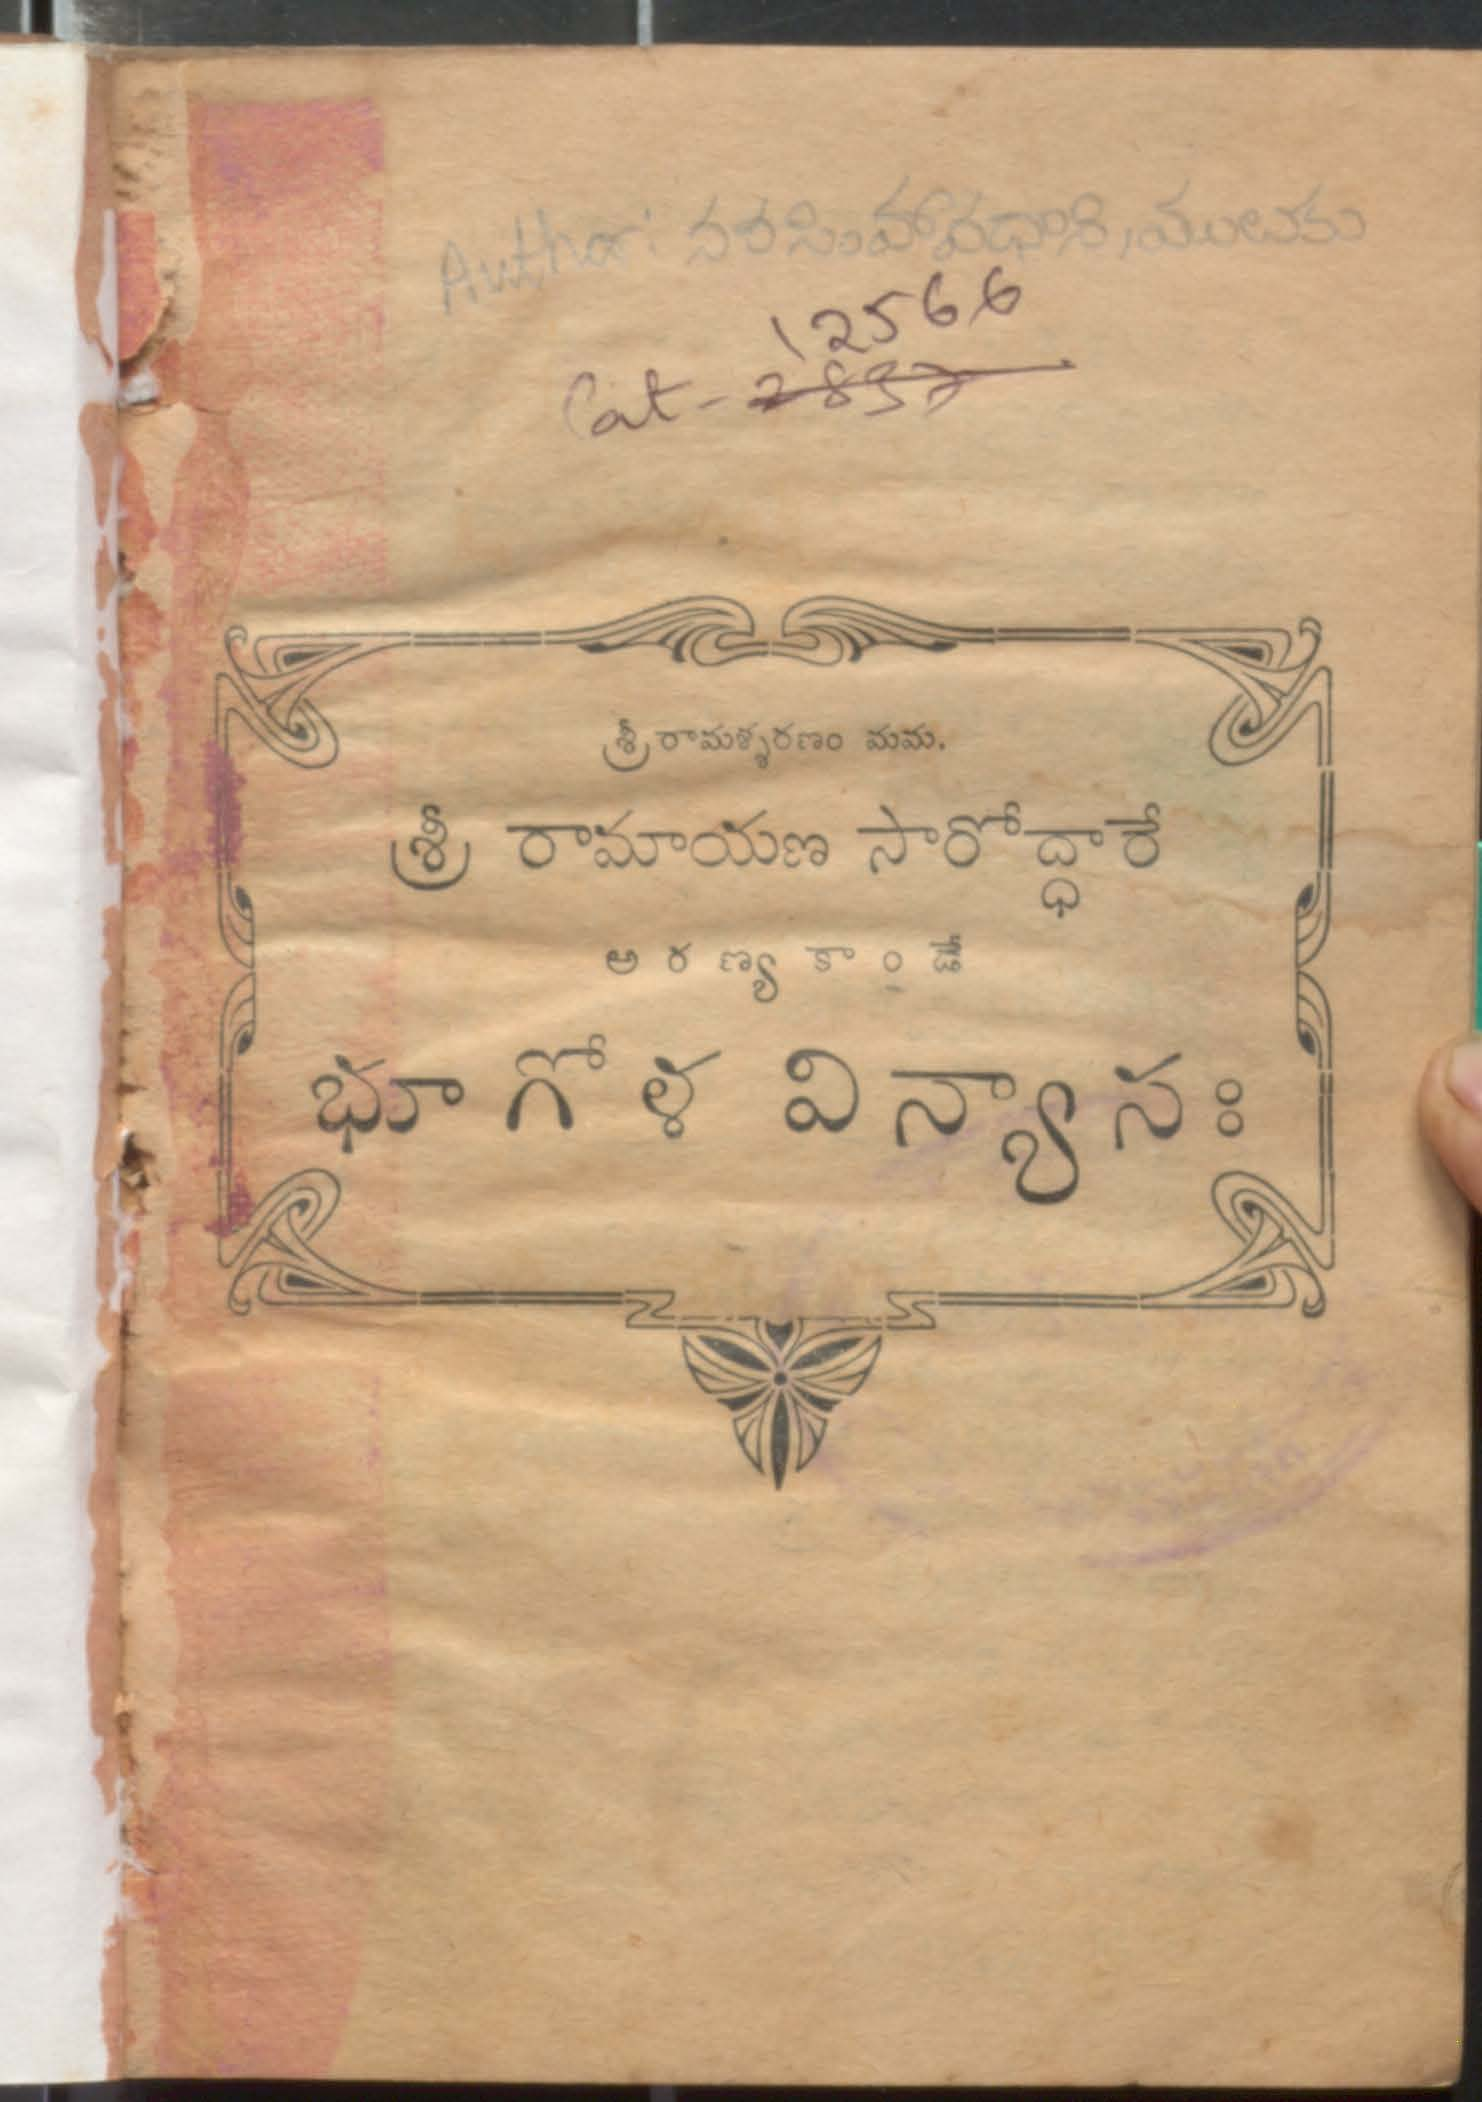 Author: నరసింహావధాని, ములుకు
12566
Cat - 2837
శ్రీరామశ్శరణం మమ.
శ్రీ రామాయణ సారోద్ధారే
అరణ్యకాండే
భూగోళ విన్యాసః